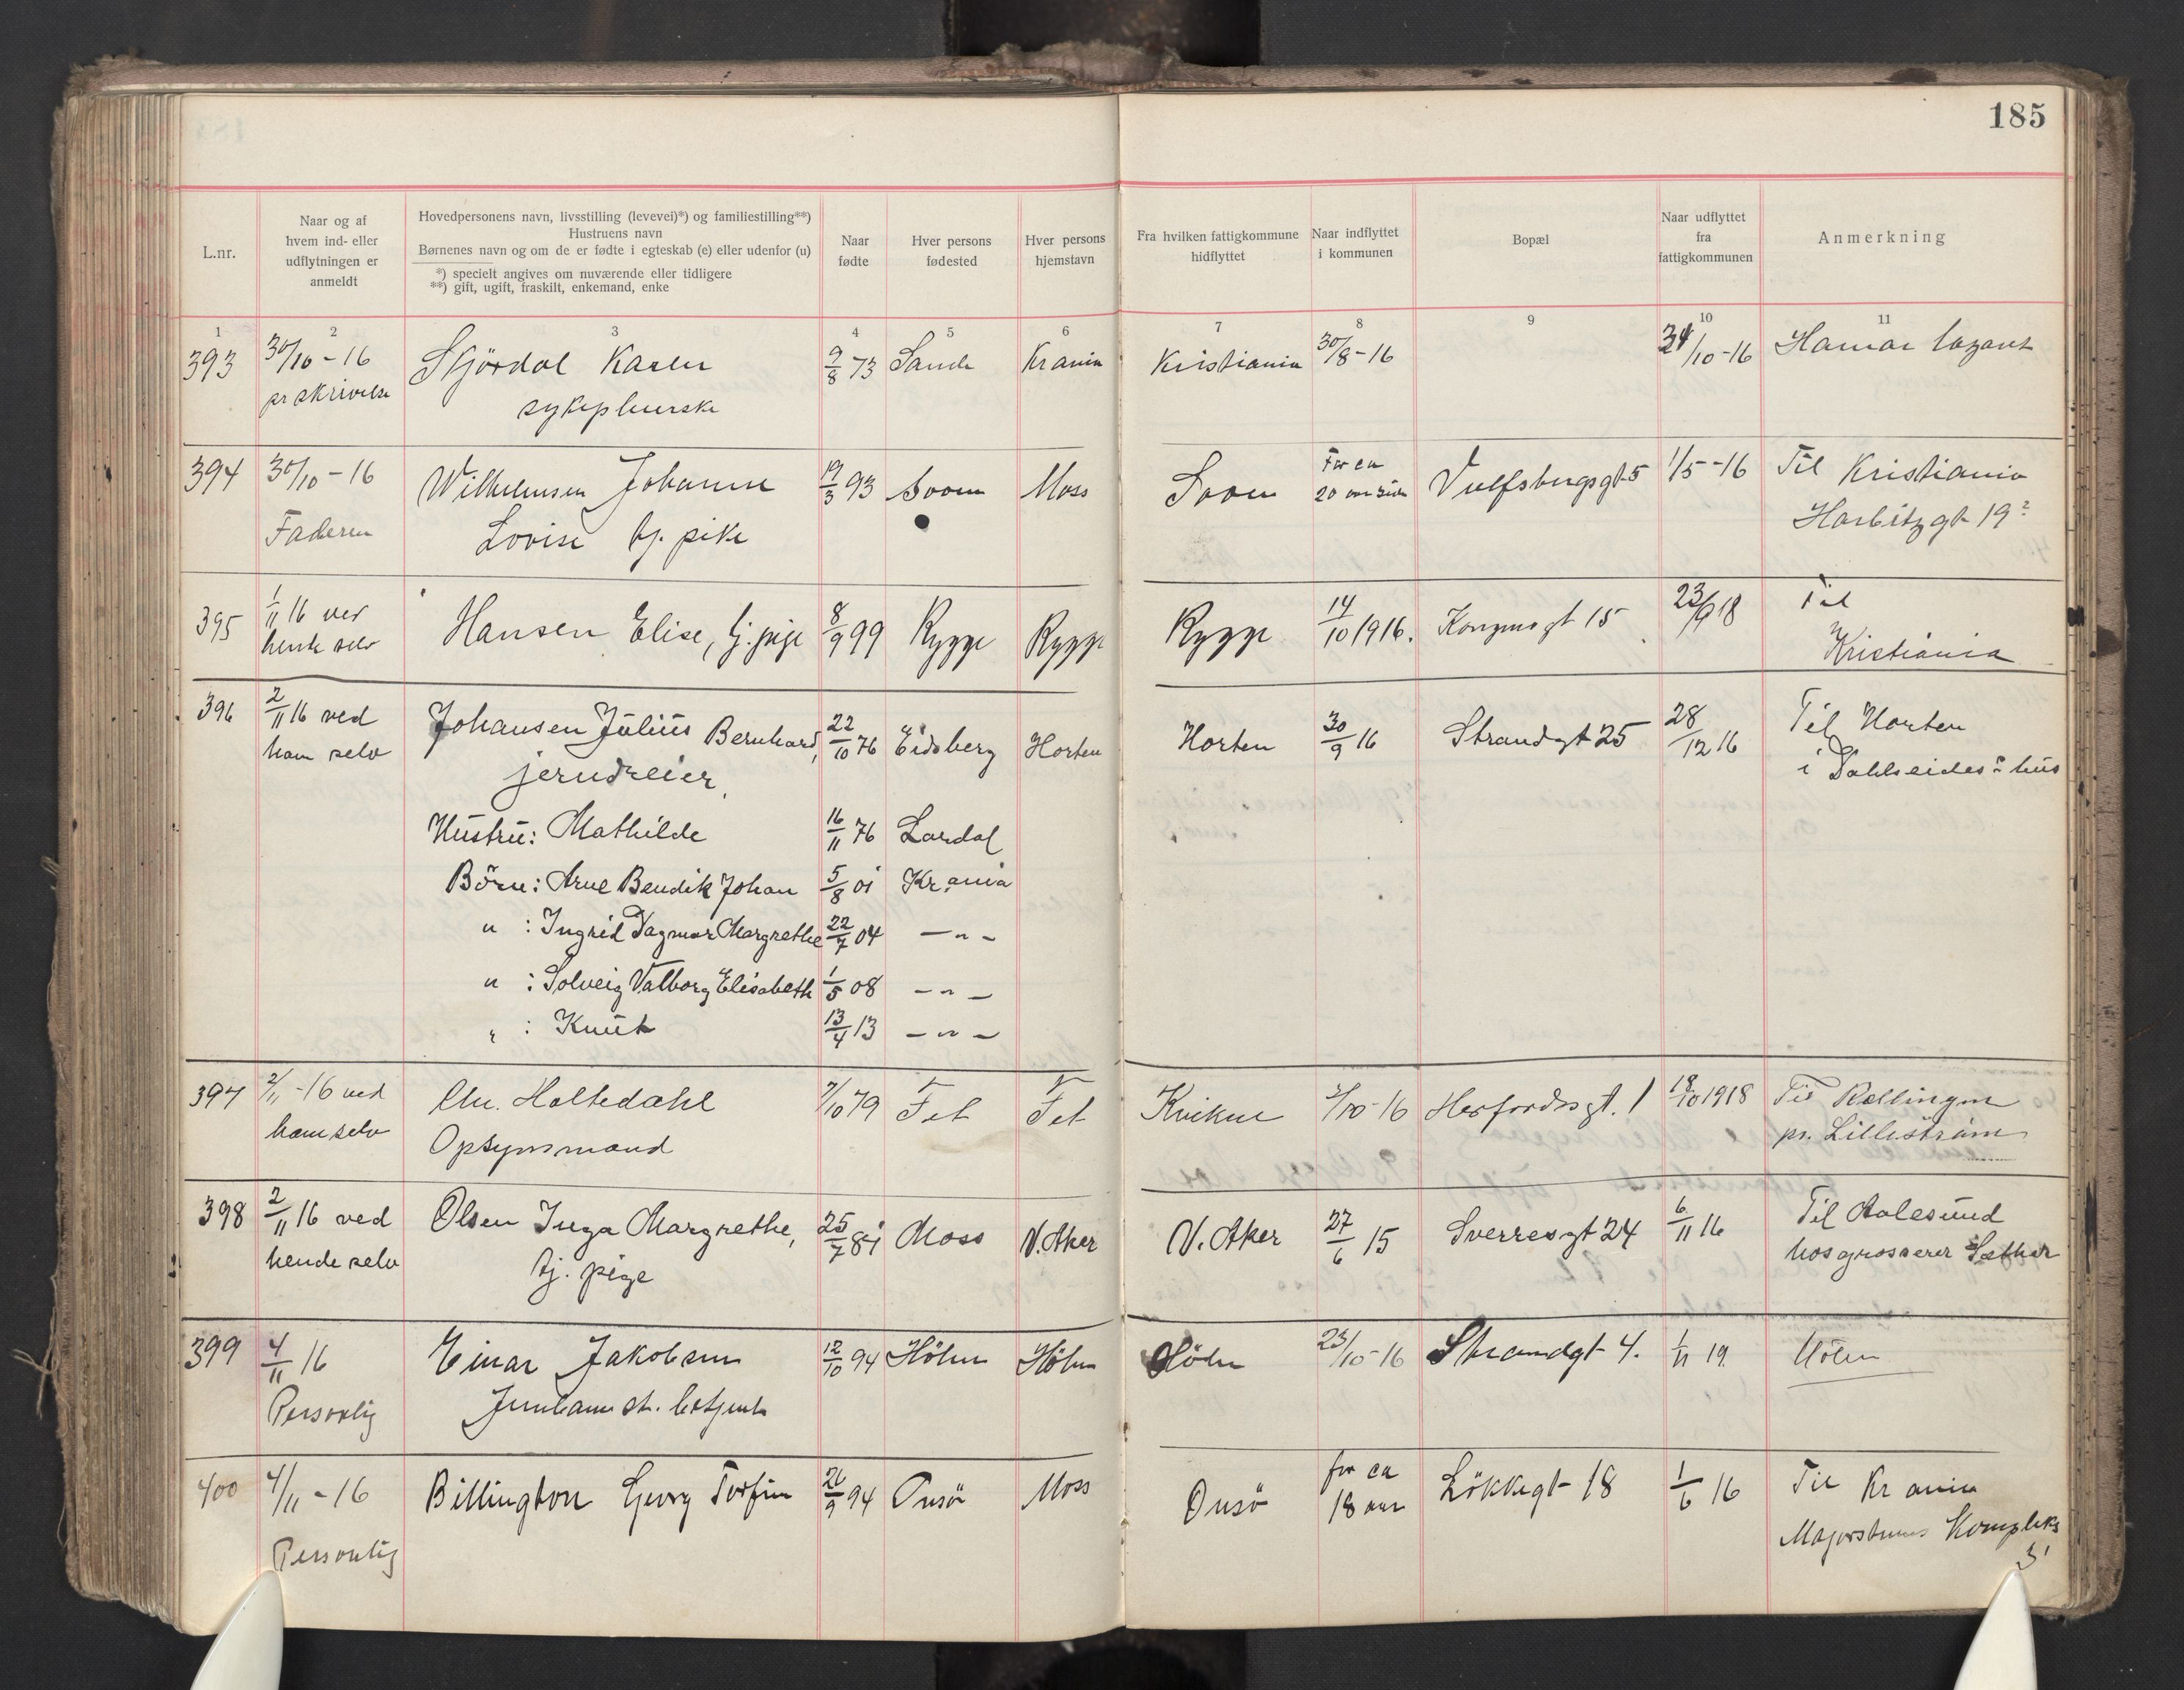 185
L.nr.
Naar og af
hvem ind- eller
udflytningen er
anmeldt
Hovedpersonens navn, livsstilling (levevei)*) og familiestilling**)
Hustruens navn
Børnenes navn og om de er fødte i egteskab (e) eller udenfor (u)
*) specielt angives om nuværende eller tidligere
**) gift, ugift, fraskilt, enkemand, enke
Naar
fødte
Hver persons
fødested
Hver persons
hjemstavn
Fra hvilken fattigkommune
hidflyttet
Naar indflyttet
i kommunen
Bopæl
Naar udflyttet
fra
fattigkommunen
Anmerkning
1 2 3 4 5 6 7 8 9 10 11
393 30/10-16 Skjördal Karen 9/8 73 Sande Krania Kristiania 30/8-16 /10-16 Hamar lazaret
pr skrivelse sykepleierske
394 30/10-16 Wilhelmsen Johanne 19/3 93 Soon Moss Soon For ca Vulfsbergsgt 5 1/5-16 Til Kristiania
20 aar siden
Faderen Lovise tj. pike Harbitzgt 19
395 1/11 16 ved Hansen Elise, tj. pige 8/9 99 Rygge Rygge Rygge 14/10 1916. Kongensgt 15 23/9 18 Til
hende selv Kristiania
396 2/11 16 ved Johansen Julius Bernhard, 22/10 76 Eidsberg Horten Horten 30/9 16 Strandgt 25 28/12 16 Til Horten
ham selv jerndreier, i hus
Hustru: Mathilde 16/11 76 Lardal
Börn: Arne Bendik Johan 5/8 01 Kr.ania
" : Ingrid Dagmar Margrethe 22/7 04 — " —
" : Solveig Valborg Elisabeth 1/5 08 — " —
" : Knut 13/4 13 — " —
397 2/11-16 ved Chr. Holtedahl 7/10 79 Fet Fet Kvikne /10-16 Herfordsgt. 1 18/10 1918 Til Rællingen
ham selv Opsynsmand pr. Lilleström
398 2/11 16 ved Olsen Inga Margrethe, 25/7 Moss V. Aker V. Aker 27/6 15 Sverresgt 24 6/11 16 Til Aalesund
hende selv tj. pige hos grosserer Sæther
399 4/11 16 Einar Jakobsen 12/10 94 Hölen Hölen Hölen 23/10-16 Strandgt 4. 1/11 19. Hölen
Personlig Jernbanest. betjent
400 4/11-16 Billington Georg Torfin 26/9 94 Onsö Moss Onsö for ca Lökkegt 18 1/6 16 Til Kr ania
18 aar
Personlig Majorstuens Kompleks